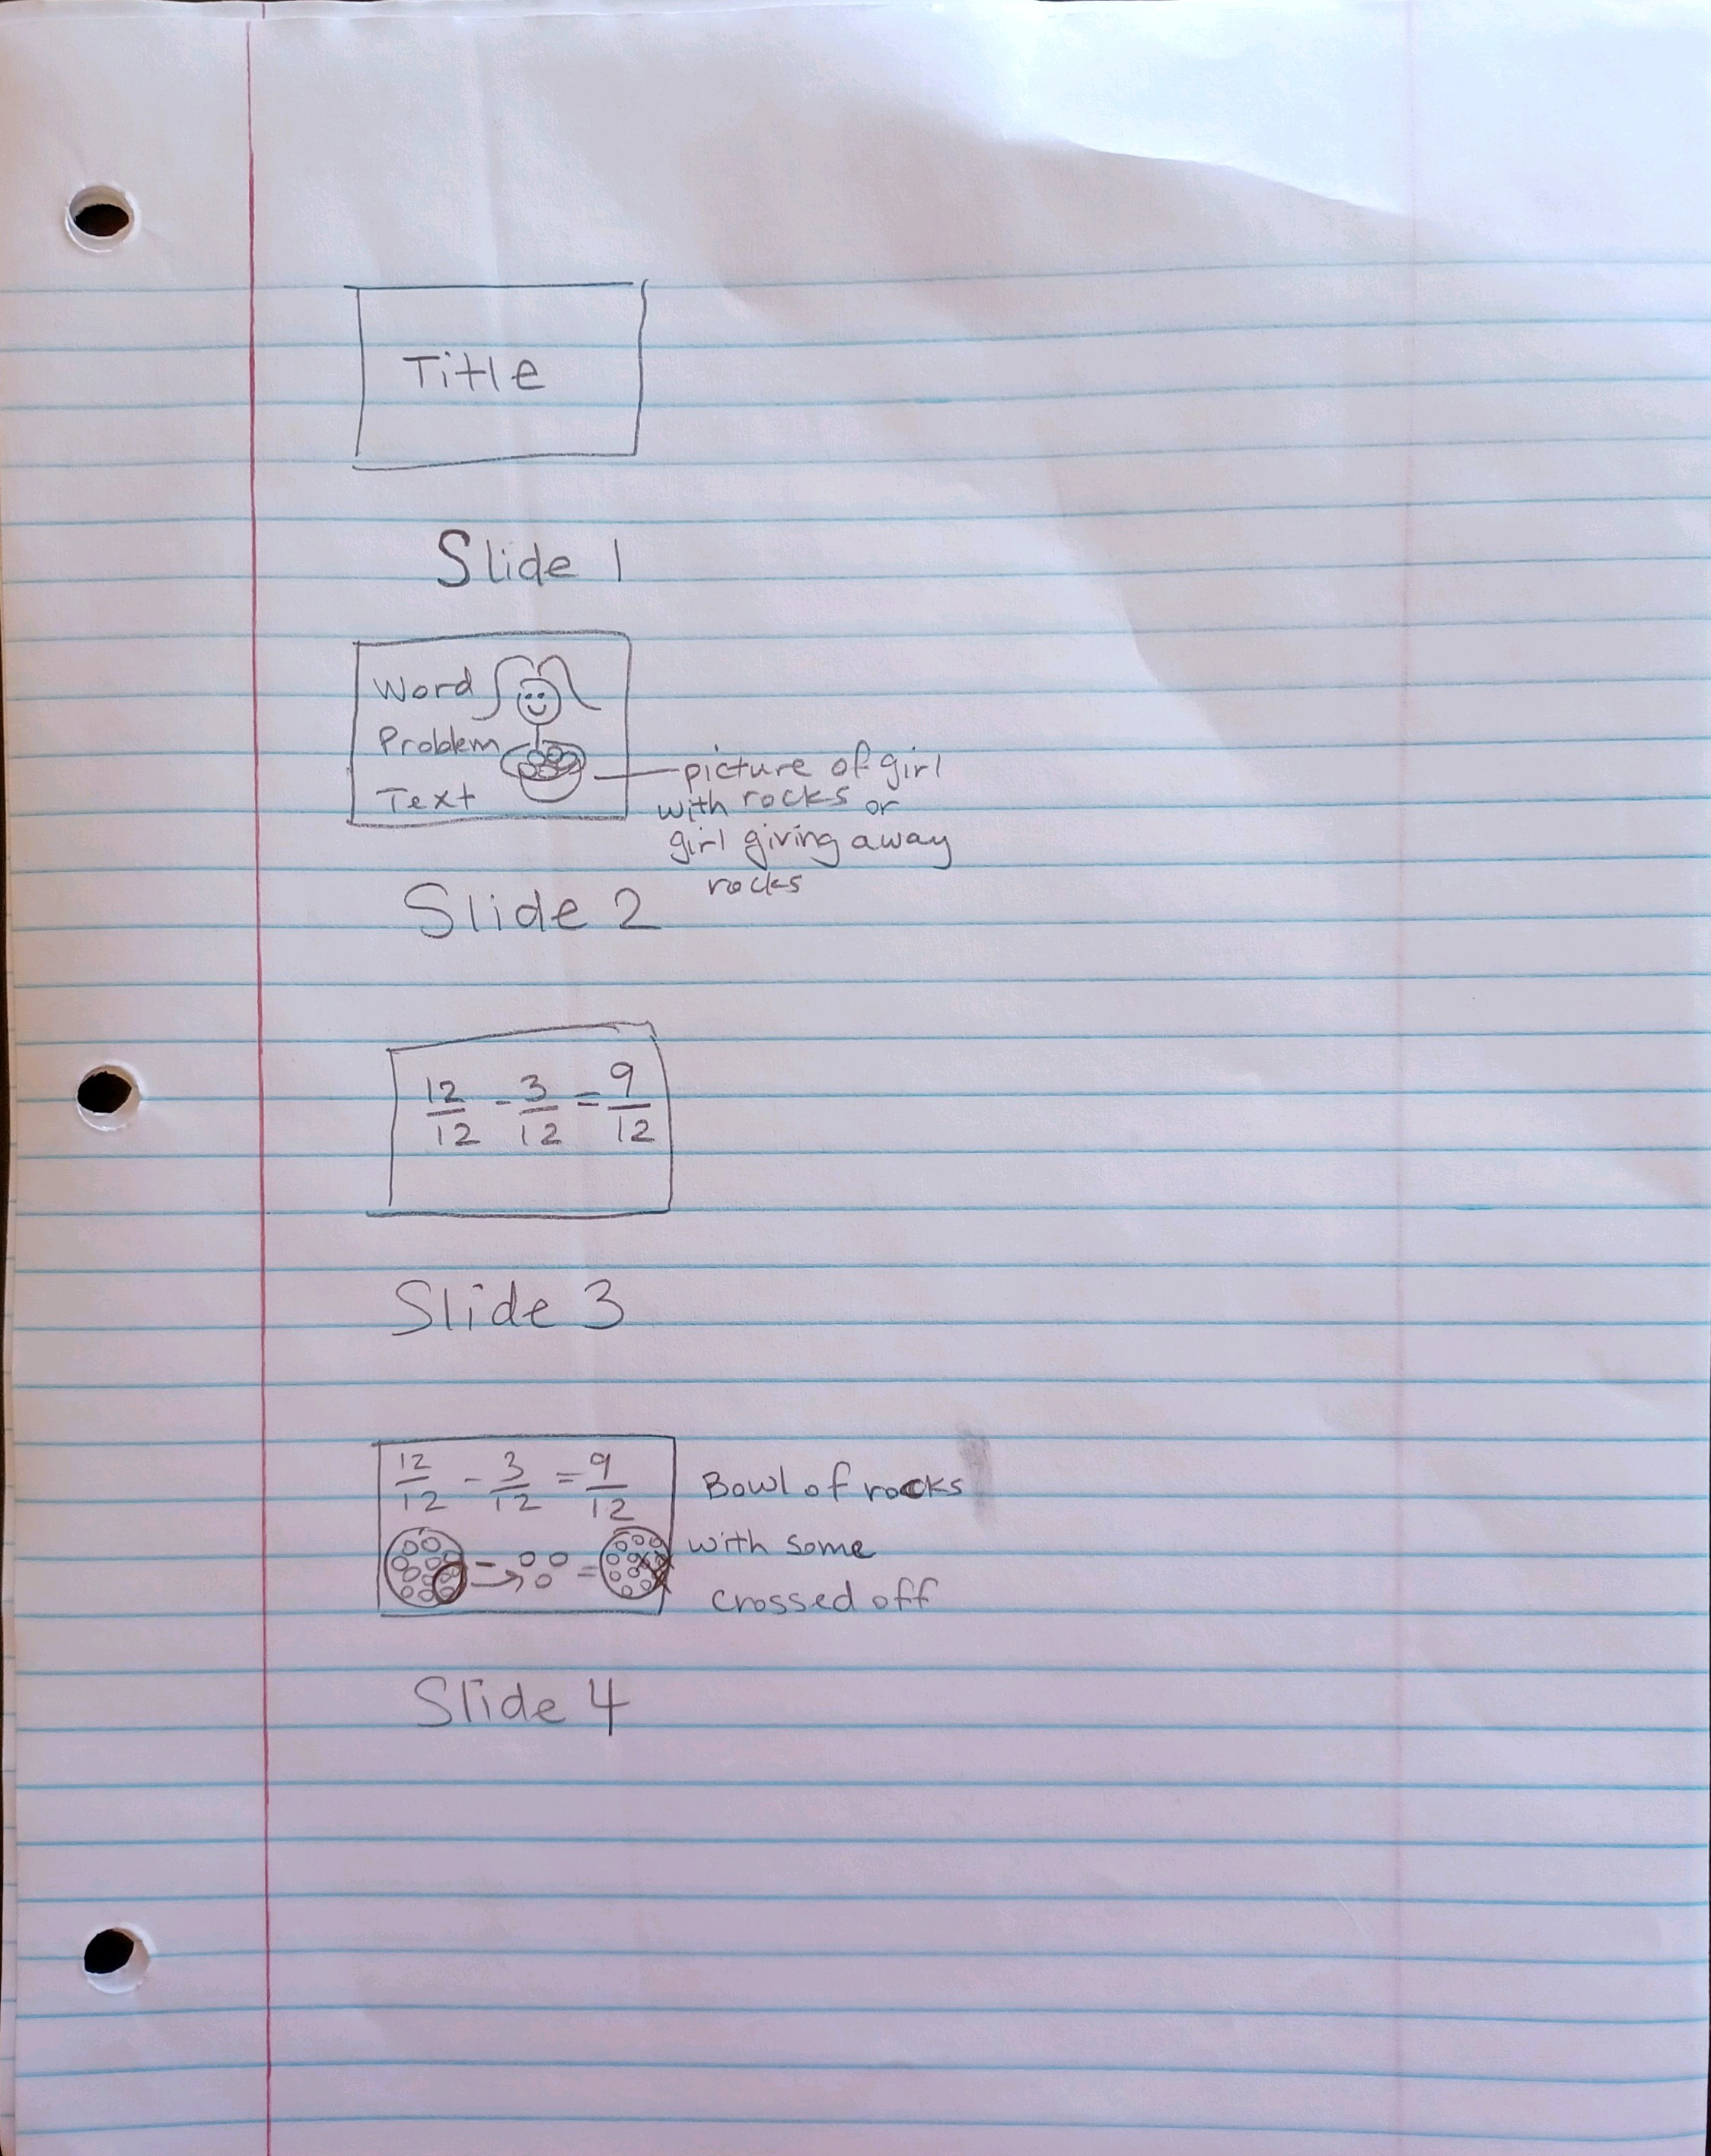 Title
Slide 1
Word
Problem
Text
picture of girl
with rocks or
girl giving away
rocks
Slide 2
12/12 - 3/12 = 9/12
Slide 3
12/12 - 3/12 = 9/12
Bowl of rocks
- → =
with some
crossed off
Slide 4